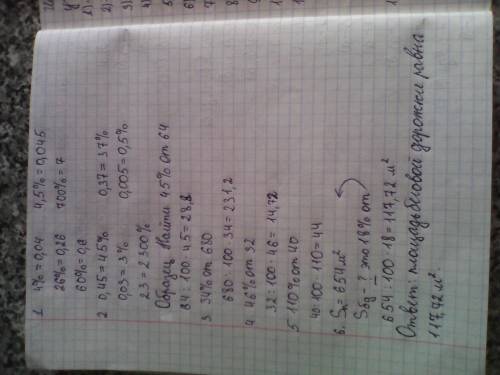 1. 4% = 0,04 4,5% = 0,045
26% = 0,26 700% = 7
60% = 0,6
2. 0,45 = 45% 0,37 = 37%
0,03 = 3% 0,005 = 0,5%
23 = 2300%
Образец Найти 45% от 64
64 : 100 · 45 = 28,8
3. 34% от 680
680 : 100 · 34 = 231,2
4. 46% от 32
32 : 100 · 46 = 14,72
5. 110% от 40
40 : 100 · 110 = 44
6. Sп = 654 м²
Sбд = ? это 18% от
654 : 100 · 18 = 117,72 м²
Ответ: площадь беговой дорожки равна
117,72 м².